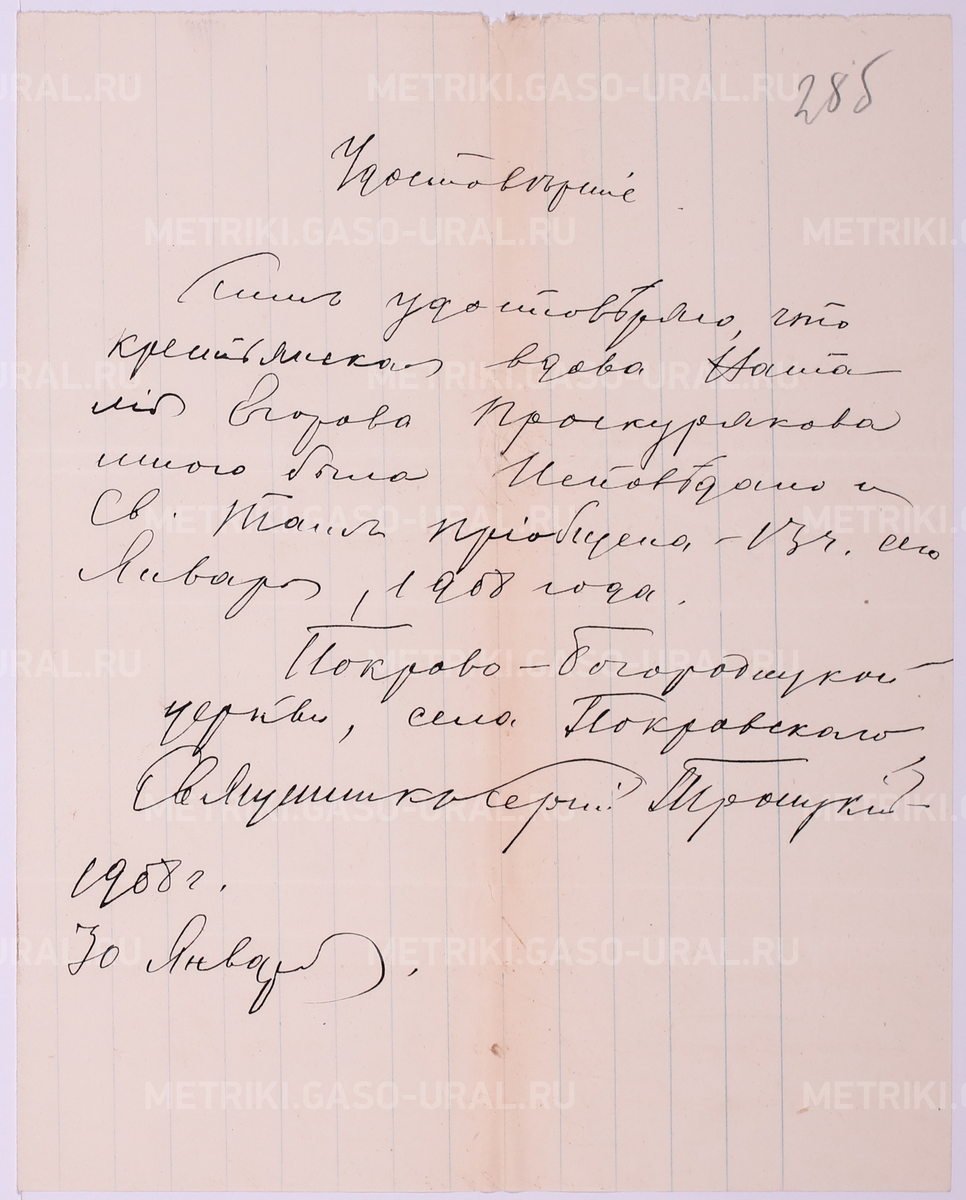 285
Удостовѣреніе
Симъ удостовѣряю, что
крестьянская вдова Ната
лія Егорова Проскурякова
мною была исповѣдана и
Св. Таинъ пріобщена – 13 ч. сего
Января, 1908 года.
Покрово-Богородицкой
церкви, села Покровскаго
Священникъ Сергій Троицкій
1908 г.
30 Января.
METRIKI.GASO-URAL.RU